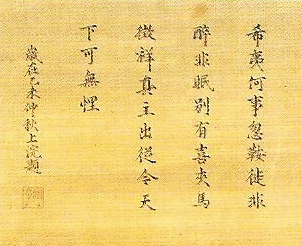 希夷何事忽鞍徙非
醉非眠別有喜夾馬
徵祥真主出從今天
下可無悝
歲在乙未仲秋上浣題